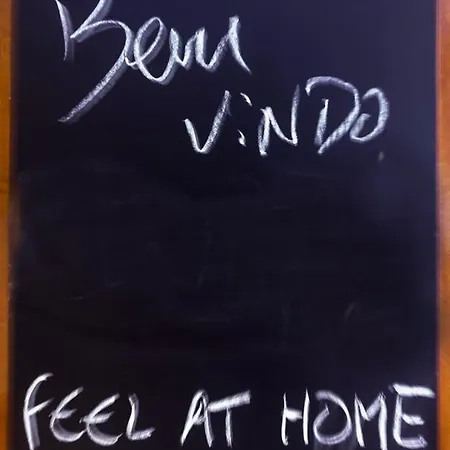 Bem
ViNDO
FEEL AT HOME